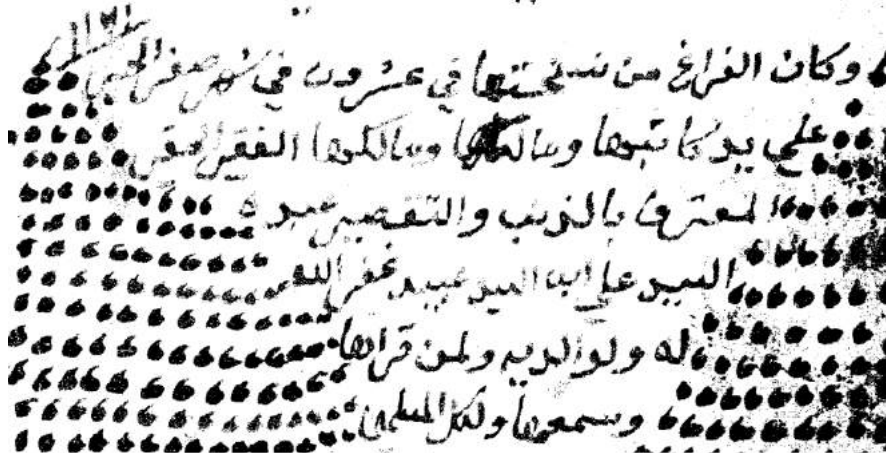 وكان الفراغ من نسختها في عشرون في شهر صفر الخير
علي يد كاتبها ومالكها الفقير الحقير
المعترف بالذنب والتقصير عبده
السيد علي ابن السيد عبيد غفر الله
له ولوالديه ولمن قراها
وسمعها ولكل المسلمين